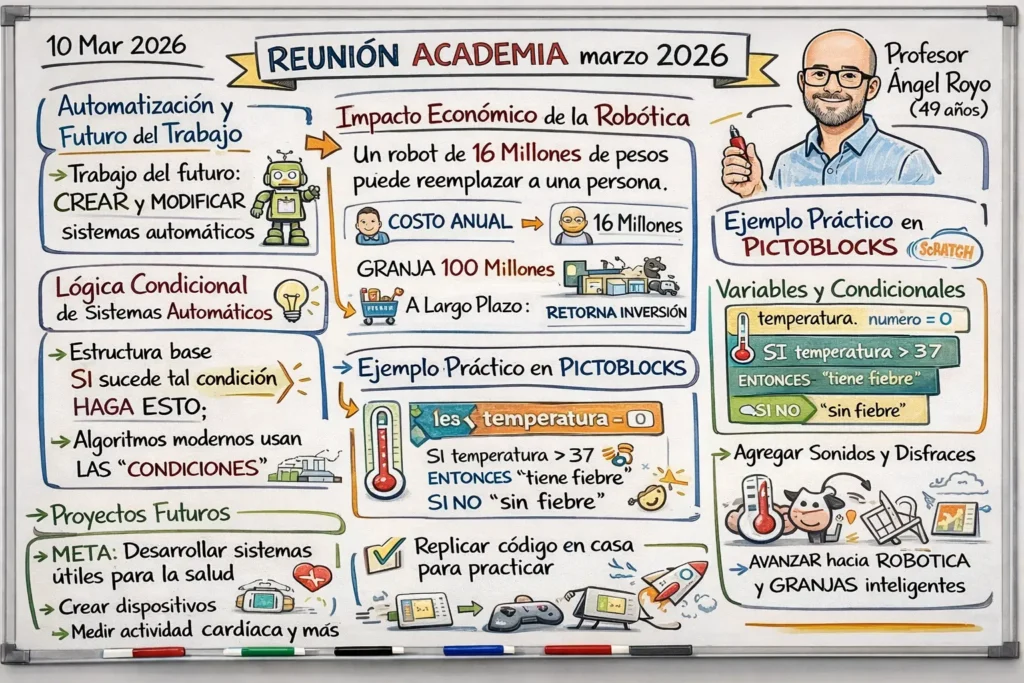 10 Mar 2026
REUNIÓN ACADEMIA marzo 2026
Profesor
Ángel Royo
(49 años)
Automatización y
Futuro del Trabajo
→Trabajo del futuro:
CREAR y MODIFICAR
sistemas automáticos
Lógica Condicional
de Sistemas Automáticos
→Estructura base
SI sucede tal condición
HAGA ESTO;
→Algoritmos modernos usan
LAS "CONDICIONES"
→Proyectos Futuros
→META: Desarrollar sistemas
útiles para la salud
→Crear dispositivos
→Medir actividad cardíaca y más
Impacto Económico de la Robótica
Un robot de 16 Millones de pesos
puede reemplazar a una persona.
COSTO ANUAL → 16 Millones
GRANJA 100 Millones
A Largo Plazo: RETORNA INVERSIÓN
→Ejemplo Práctico en PICTOBLOCKS
les temperatura = 0
SI temperatura > 37
ENTONCES "tiene fiebre"
SI NO "sin fiebre"
Replicar código en casa
para practicar
Ejemplo Práctico en
PICTOBLOCKS SCRATCH
Variables y Condicionales
temperatura. numero = 0
SI temperatura > 37
ENTONCES "tiene fiebre"
SI NO "sin fiebre"
→Agregar Sonidos y Disfraces
→AVANZAR hacia ROBÓTICA
y GRANJAS inteligentes